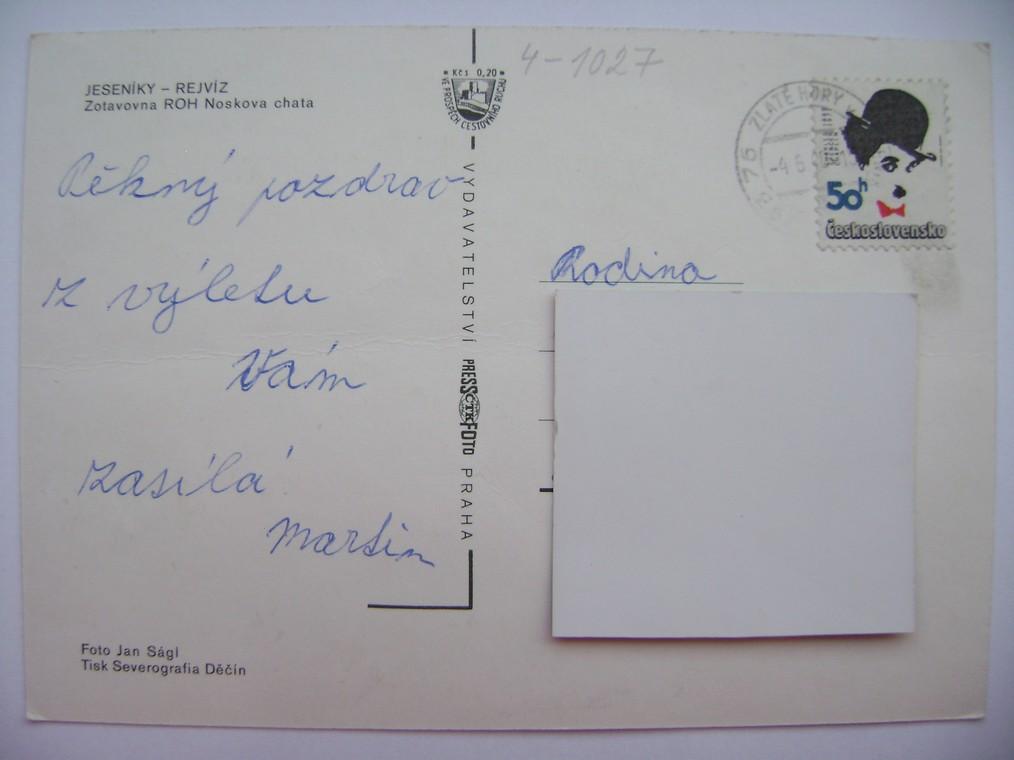 JESENÍKY – REJVÍZ
Zotavovna ROH Noskova chata
Pěkný pozdrav
z výletu
Vám
zasílá
Martin
Foto Jan Ságl
Tisk Severografia Děčín
Kčs 0,20
VE PROSPĚCH CESTOVNÍHO RUCHU
VYDAVATELSTVÍ PRESSFOTO PRAHA
ČTK
4-1027
ZLATÉ HORY
-4.6
50h
Československo
Rodina